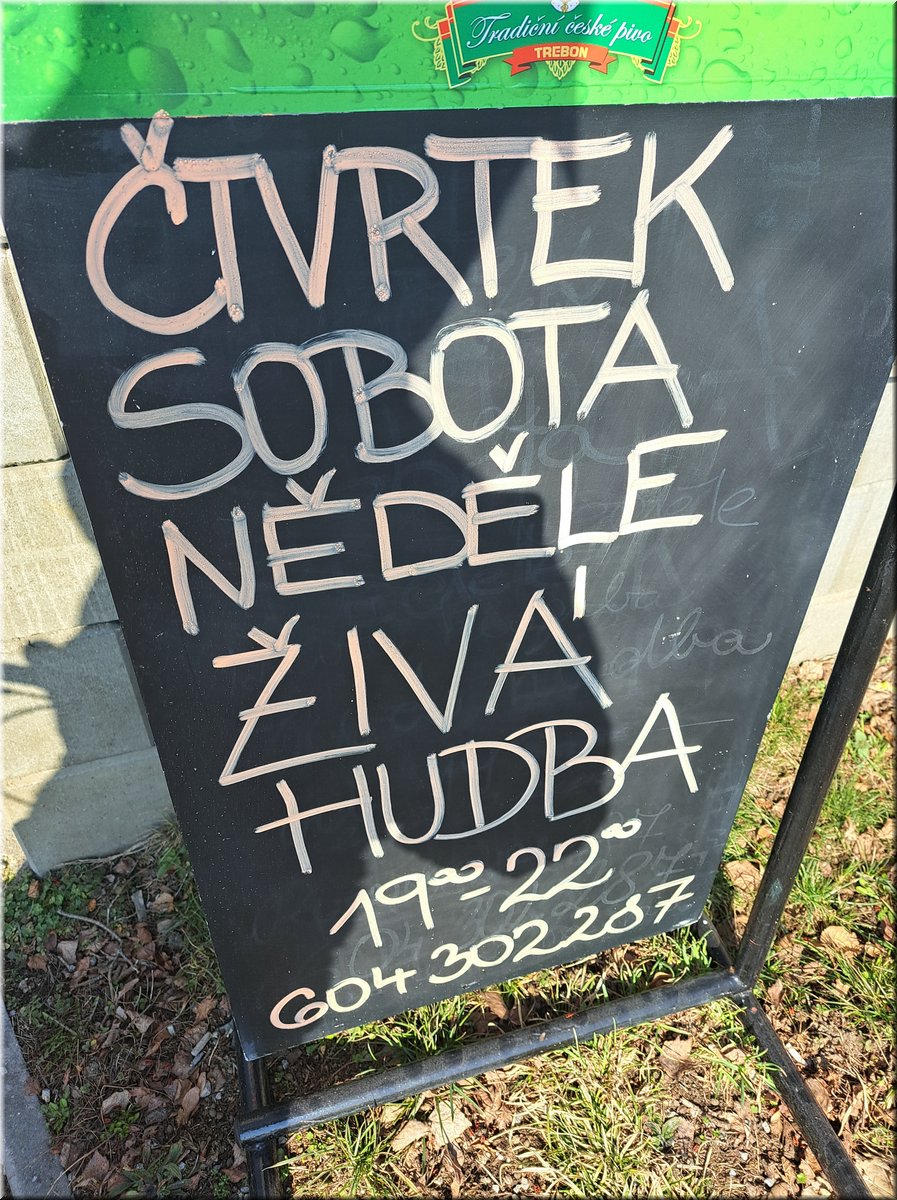 Tradiční české pivo
TREBON
ČTVRTEK
SOBOTA
NĚDĚLE
ŽIVÁ
HUDBA
19⁰⁰-22⁰⁰
604 302287